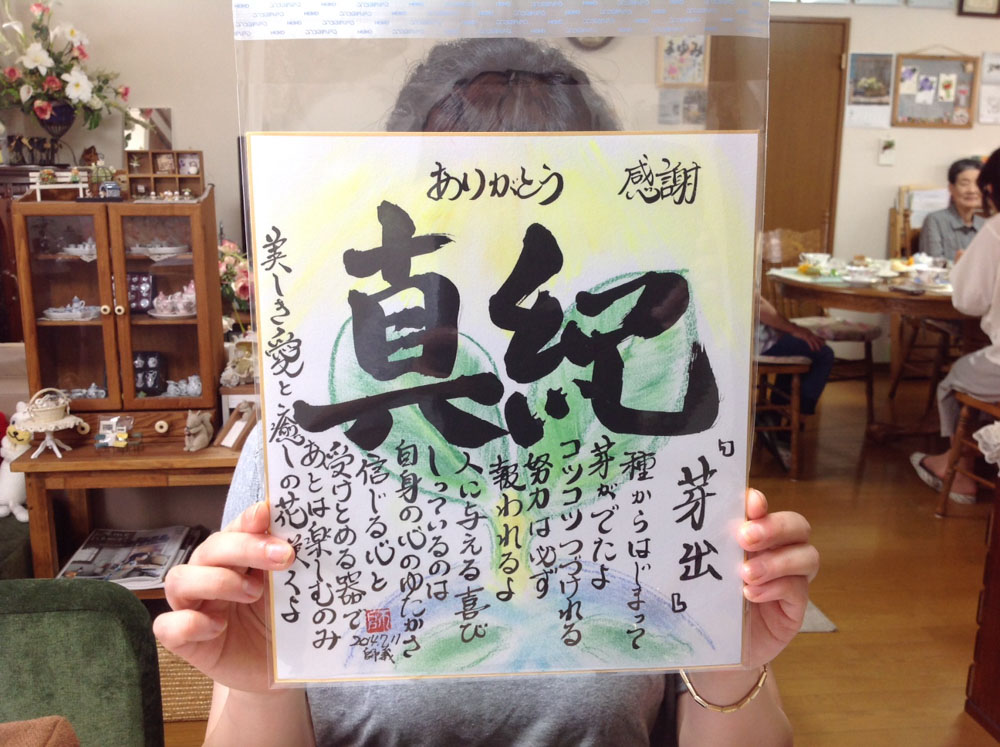 ありがとう 感謝
真紀
『芽出』
種からはじまって
芽がでたよ
コツコツつづけれる
努力は必ず
報われるよ
人に与える喜び
しっているのは
自身の心のゆたかさ
信じる心と
受けとめる器で
あとは楽しむのみ
美しき愛と癒しの花咲くよ
2014.7.11
まゆみ
HEIKO